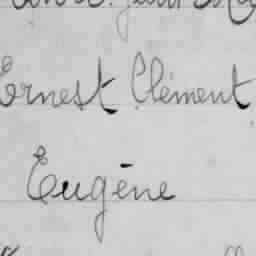 Ernest Clément
Eugène